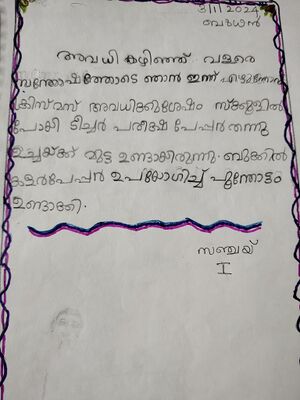 3/1/2024
ബുധൻ
അവധി കഴിഞ്ഞ് വളരെ
സന്തോഷത്തോടെ ഞാൻ ഇന്ന്
ക്രിസ്മസ് അവധിക്കുശേഷം സ്കൂളിൽ
പോയി ടീച്ചർ പരീക്ഷ പേപ്പർ തന്നു
ഉച്ചയ്ക്ക് മുട്ട ഉണ്ടായിരുന്നു. ബുക്കിൽ
കളർപേപ്പർ ഉപയോഗിച്ച് പൂന്തോട്ടം
ഉണ്ടാക്കി.
സഞ്ചയ്
I